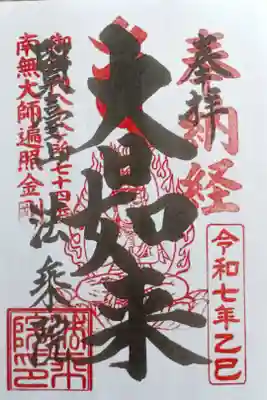 奉拝
納経
令和七年乙巳
大日如来
御府内八十八ヶ所七十四番
南無大師遍照金剛
賢臺山法乗院